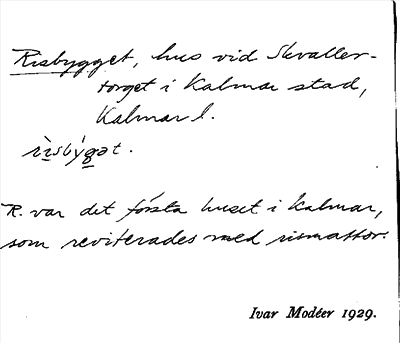 Risbygget, hus vid Skvaller-
torget i Kalmar stad,
Kalmar l.
rìsbýgət.
R. var det första huset i Kalmar,
som reviterades med rismattor.
Ivar Modéer 1929.